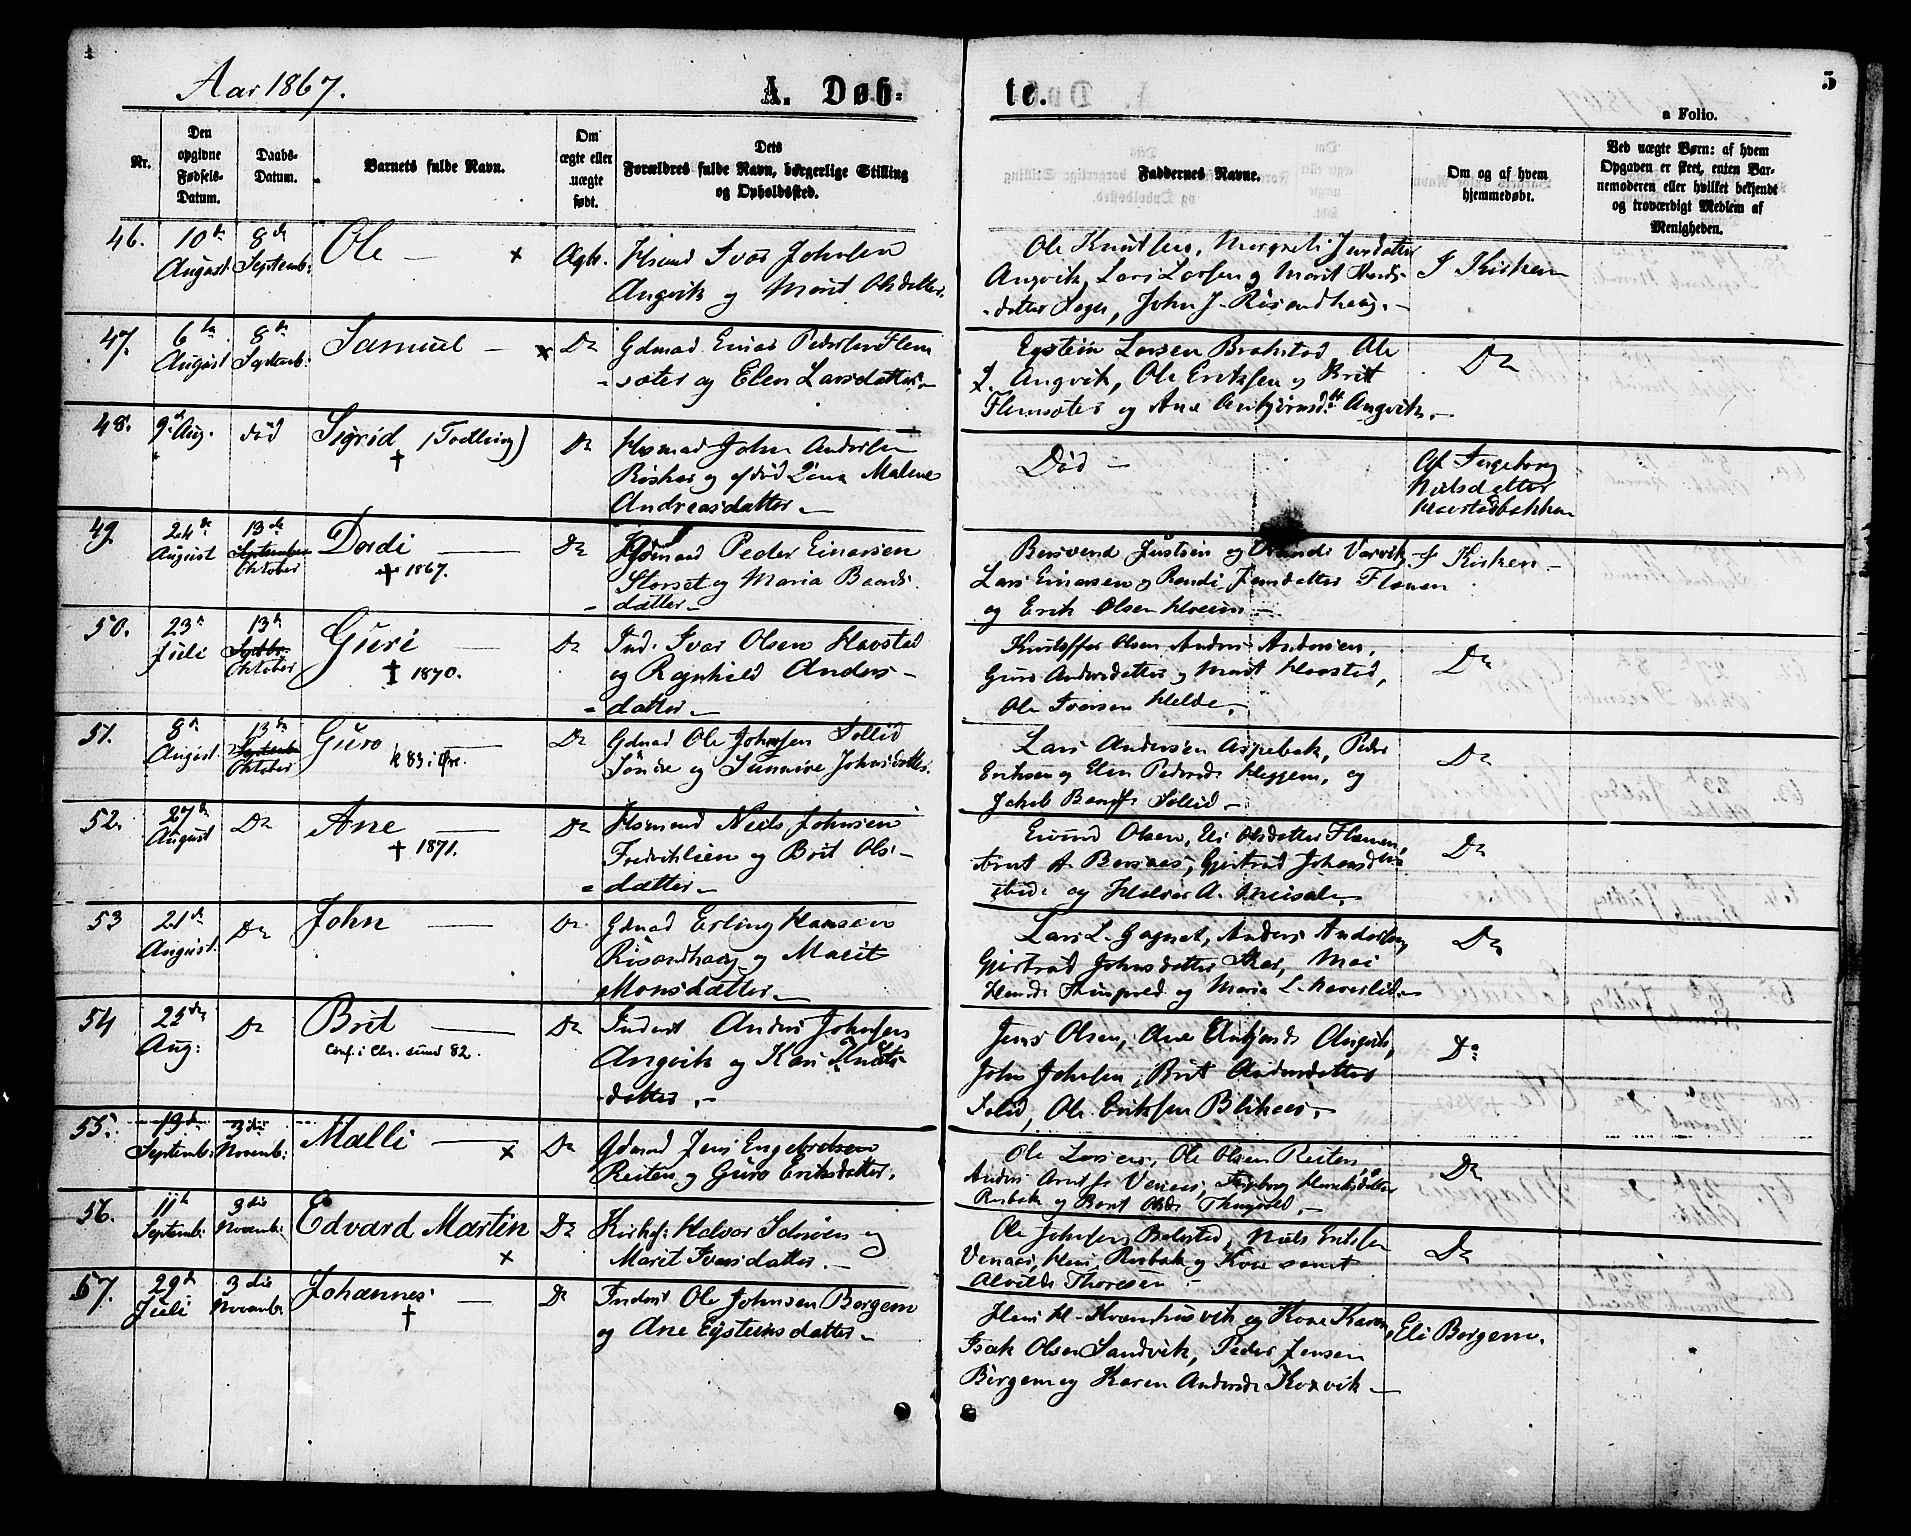 4
Aar 1867.
A. Døb-
te.
5
a Folio.
Nr.
Den opgivne Fødsels-Datum.
Daabs-Datum.
Barnets fulde Navn.
Om ægte eller uægte født.
Dets Forældres fulde Navn, borgerlige Stilling og Opholdssted.
Faddernes Navne.
Om og af hvem hjemmedøbt.
Ved uægte Børn: af hvem Opgaven er skeet, enten Barnemoderen eller hvilket bekjendt og troværdigt Medlem af Menigheden.
46. 10de August 8de Septemb: Ole — x Ægte.
Husmd Ivar Johnsen
Angvik og Marit Olsdatter.
Ole Knutsen,
Angvik, Lars Larsen og Marit
John J. Risandhaug. —
I Kirken
47. 6te August 8de Septemb: Samuel — x Do
Gdmad Einar Pedersen Flem
-sæter og Elen Larsdatter. —
Eystein Larsen Brakstad, Ole
Angvik, Ole Eriksen og Brit
Flemsæter og Ane Anbjørnsd. Angvik. —
Do
48. 9de Aug. død Sigrid (Tvilling) † Do
Husmad John Andersen
Røskar og Malene
Andreasdatter. —
Død —
Af Ingeborg
Nielsdatter
Havstadbakken
49. 24de August 13de September Oktober Dordi — † 1867. Do
Husmand Peder Einarsen
Storset og Maria Baards
-datter —
Bersvend Justsen og Varvik,
Lars Einarsen og Randi Jensdatter Flemen
og Erik Olsen Hoem —
I Kirken —
50. 23de Juli 13de Septbr. Oktober Guri — † 1870. Do
Ind. Ivar Olsen Havstad
og Ragnhild Anders —
-datter —
Kristoffer Olsen, Anders Andersen,
Guro Andersdatter og Marit Havstad,
Ole Iversen Helde. —
Do
51. 8de August 13de Septemb Oktober Guro — k 83 i Øre. Do
Gdmad Ole Johnsen Sollid
Søndre og Sunnive Johnsdatter.
Lars Andersen Aspebak, Peder
Eriksen og Elen Pedersd. Heggem, og
Jakob Sollid —
Do
52. 27de August Do Ane — † 1871. Do
Husmand Niels Johnsen
Fredriklien og Brit Ols —
-datter —
Eivind Olsen, Eli Olsdatter Flemen,
Arnt A. Bersaas, Gjertrud Johnsd.
og Halvor A. Meisal. —
Do
53 21de August. Do John — Do
Gdmad Erling Hansen
Risandhaug og Marit
Monsdatter —
Lars L. Gagnat, Anders Andersen,
Gjertrud Johnsdatter Skar,
Thingvold og Maria L. Naverlid —
Do
54 22de Aug: Do Brit — Conf. i Chr.sund 82. Do
Inderst Anders Johnsen
Angvik og Kari Knuts-
-datter. —
Jens Olsen, Ane Anbjønsd. Angvik,
John Johnsen, Brit Andersdatter
Solid, Ole Eriksen Blikaas. —
Do
55. 19de Septemb: 3die Novemb: Malli — x Do
Gdmad Jens Engebretsen
Reiten og Guro Eriksdatter.
Ole Larsen, Ole Olsen Reiten,
Anders Venaas, Ingeborg Henriksdatter
Rusbak og Thingvold. —
Do
56. 11te Septemb: 3die Novemb: Edvard Martin x Do
Kirks: Halvor og
Marit Iversdatter. —
Ole Johnsen Bolstad, Niels Eriksen
Venaas, Rusbak og Kone samt
Alvilde Thoresen —
Do
57. 29de Juli 3die Novemb: Johannes — † Do
Inderst Ole Johnsen Bergem
og Ane Eysteinsdatter —
og Kone Karen,
Isak Olsen Sandvik, Peder Jensen
Bergem og Karen Andersd. Koxvik —
Eli Bergem.